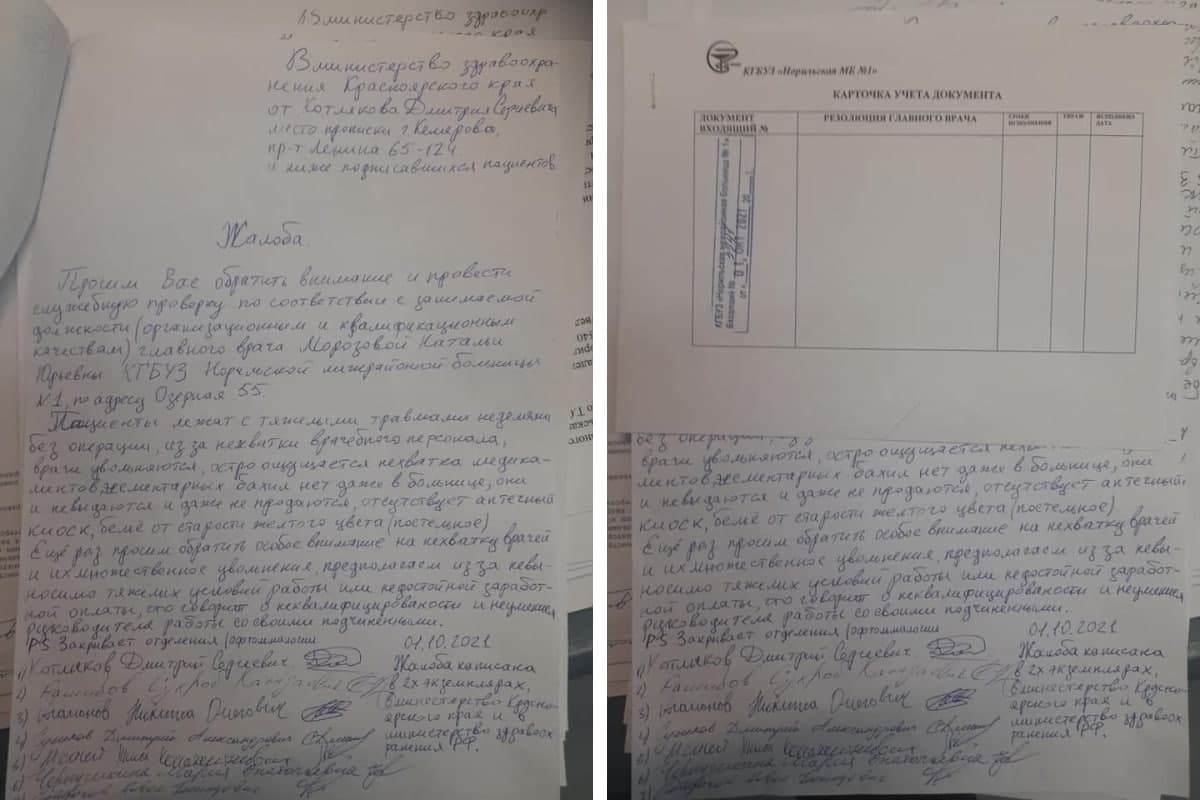 В министерство здравоохр
края
В министерство здравоохра-
нения Красноярского края
от Котлякова Дмитрия Сергеевича
место прописки г. Кемерово,
пр-т Ленина 65-124
и ниже подписавшихся пациентов
Жалоба.
Просим Вас обратить внимание и провести
служебную проверку по соответствие с занимаемой
должности (организационним и квалификационным
качествам) главного врача Морозовой Натальи
Юрьевны КГБУЗ Норильской межрайонной больницы
№1, по адресу Озерная 55.
Пациенты лежат с тяжелыми травмами неделями
без операции, из за нехватки врачебного персонала,
врачи увольняются, остро ощущается нехватка медика-
ментов, элементарных бахил нет даже в больнице, они
и невыдаются и даже не продаются, отсутствует аптечный
киоск, бельё от старости желтого цвета (постельное)
Ещё раз просим обратить особое внимание на нехватку врачей
и их множественное увольнения, предполагаем из за невы-
носимо тяжелых условий работы или недостойной заработ-
ной оплаты, это говорит о неквалифицированости и неумения
руководителя работы со своими подчинёнными.
P.S Закривает отделения (офтольмологии 01.10.2021
1) Котляков Дмитрий Сергеевич Жалоба написана
2) в 2х экземплярах,
3) Никита Олегович в министерство Красно-
4) Дмитрий Александрович ярского края и в
5) министерство здравоох
6) Мария ранения РФ.
7)
КГБУЗ «Норильская МБ №1»
КАРТОЧКА УЧЕТА ДОКУМЕНТА
ДОКУМЕНТ ВХОДЯЩИЙ № РЕЗОЛЮЦИЯ ГЛАВНОГО ВРАЧА СРОКИ ИСПОЛНЕНИЯ ИСПОЛНЕНО ДАТА
КГБУЗ «Норильская межрайонная больница № 1»
Входящий №
от « 01 ОКТ 2021 20 г.
без операции,
врачи увольняются, остро ощущается нехват
ментов, элементарных бахил нет даже в больнице, они
и невыдаются и даже не продаются, отсутствует аптечный
киоск, бельё от старости желтого цвета (постельное)
Ещё раз просим обратить особое внимание на нехватку врачей
и их множественное увольнения, предполагаем из за невы-
носимо тяжелых условий работы или недостойной заработ-
ной оплаты, это говорит о неквалифицированости и неумения
руководителя работы со своими подчинёнными.
P.S Закривает отделения (офтольмологии 01.10.2021
1) Котляков Дмитрий Сергеевич Жалоба написана
2) в 2х экземплярах,
3) Никита Олегович в министерство Красно-
4) Дмитрий Александрович ярского края и в
5) министерство здравоох
6) Мария ранения РФ.
7)